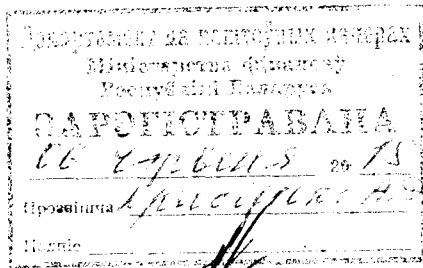 Дэпартамент па каштоўных паперах
Міністэрства фінансаў
Рэспублікі Беларусь
ЗАРЭГІСТРАВАНА
чэрвеня 20 15
Прозвішча
Подпіс